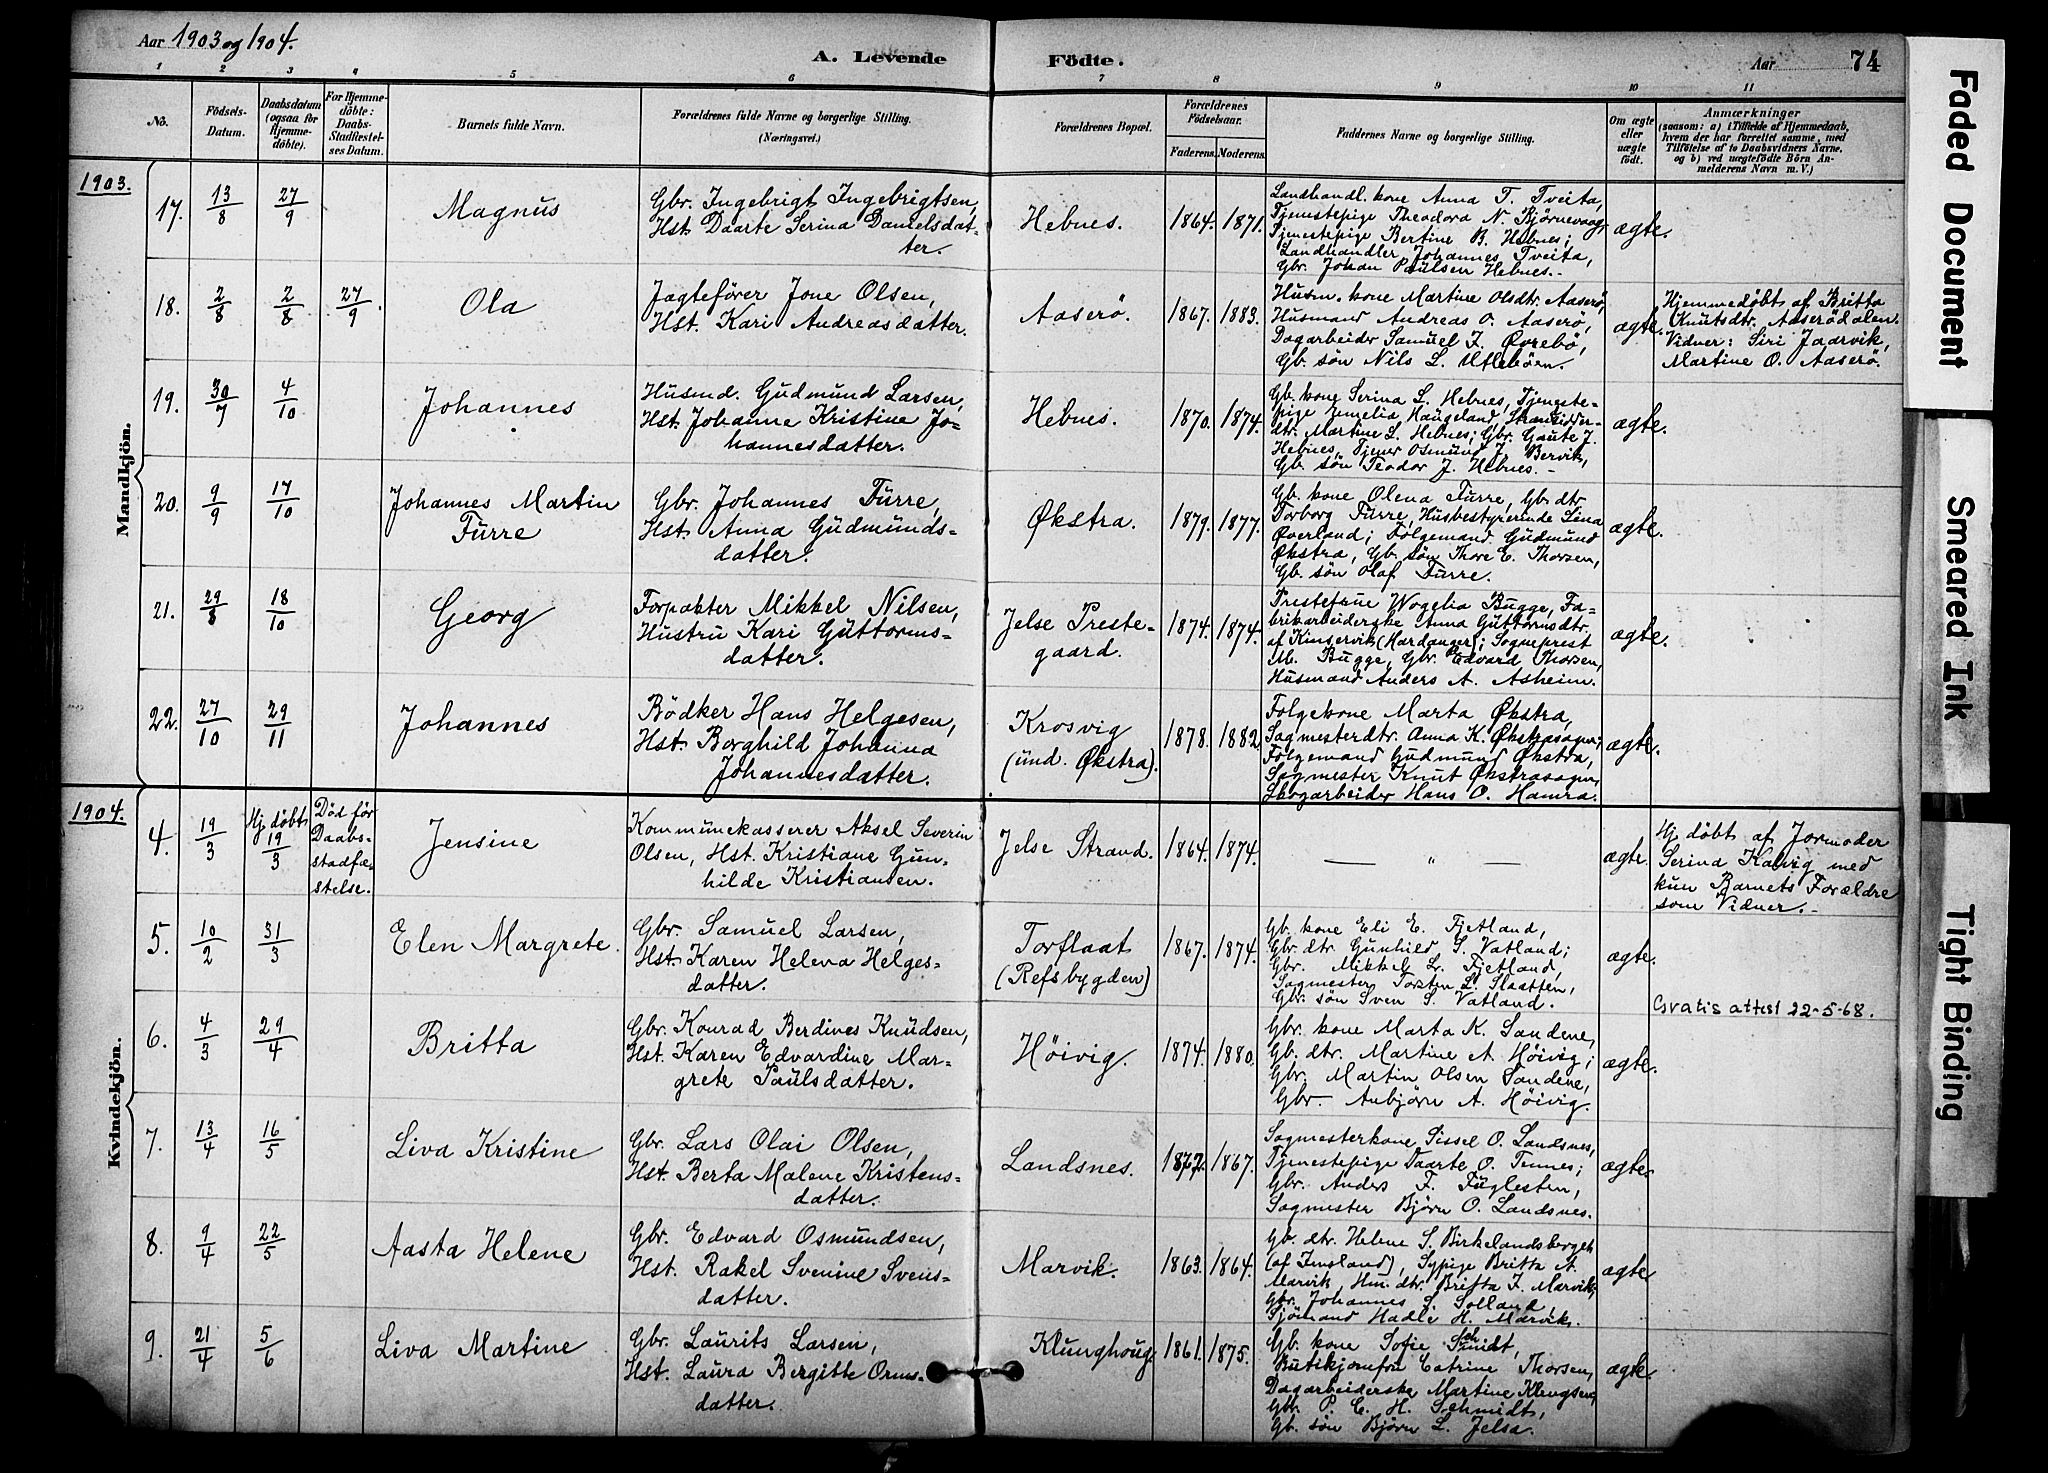 Aar 1903 og 1904.
A. Levende Fødte.
Aar 74
1 2 3 4 5 6 7 8 9 10 11
No.
Födsels-
Datum.
Daabsdatum
(ogsaa for
Hjemme-
döbte).
For Hjemme-
döbte:
Daabs-
Stadfæstel-
ses Datum.
Barnets fulde Navn.
Forældrenes fulde Navne og borgerlige Stilling.
(Næringsvei.)
Forældrenes Bopæl.
Forældrenes
Födselsaar.
Faderens. Moderens.
Faddernes Navne og borgerlige Stilling.
Om ægte
eller
uægte
födt.
Anmærkninger
(saasom: a) i Tilfælde af Hjemmedaab,
hvem der har forrettet samme, med
Tilföielse af to Daabsvidners Navne,
og b) ved uægtefödte Börn An-
melderens Navn m. V.)
Mandkjön.
1903.
17. 13/8 27/9
Magnus
Gbr. Ingebrigt Ingebrigtsen,
Hst. Daarte Serina Danielsdat-
ter.
Hebnes.
1864. 1871.
Landhandl. kone Anna T. Tveita,
Tjenestepige Theodora N. Bjørnevaag,
Tjenestepige Bertine B. Hebnes;
Landhandler Johannes Tveita,
Gbr. Johan Paulsen Hebnes.
ægte.
18. 2/8 2/8 27/9
Ola
Jagtefører Jone Olsen,
Hst. Kari Andreasdatter.
Aaserö.
1867. 1883.
Husm. kone Martine Olsdtr. Aaserö,
Husmand Andreas O. Aaserö,
Dagarbeider Samuel J. Øvrebö,
Gb. søn Nils L. Utlebøen.
ægte.
Hjemmedøbt af Britta
Knutsdtr. Aaserödalen.
Vidner: Siri Jaarvik,
Martine O. Aaserö.
19. 30/7 4/10
Johannes
Husmd. Gudmund Larsen,
Hst. Johanne Kristine Jo-
hannesdatter.
Hebnes.
1870. 1874.
Gb. kone Serina L. Hebnes, Tjeneste-
pige Haugeland,
dtr. Martine L. Hebnes; Gbr. Gaute J.
Hebnes, Tjener Osmund J. Bervik,
Gb. søn Teodor J. Hebnes.
ægte.
20. 9/9 17/10
Johannes Martin
Furre
Gbr. Johannes Furre,
Hst. Anna Gudmunds-
datter.
Økstra.
1879. 1877.
Gb. kone Olena Furre, Gb. dtr.
Torborg Furre, Husbestyrerinde Lina
Øverland; Følgemand Gudmund
Økstra, Gb. søn Thore E. Thorsen,
Gb. søn Olaf Furre.
ægte.
21. 29/8 18/10
Georg
Forpakter Mikkel Nilsen,
Hustru Kari Guttorms-
datter.
Jelse Preste-
gaard.
1874. 1874.
Prestefrue Wogelia Bugge, Fa-
brikarbeiderske Anna Guttormsdtr.
af Kinservik (Hardanger); Sogneprest
M. Bugge, Gbr. Edvard Thorsen,
Husmand Anders A. Asheim.
ægte.
22. 27/10 29/11
Johannes
Bödker Hans Helgesen,
Hst. Borghild Johanna
Johannesdatter.
Krosvig
(und. Økstra).
1878. 1882.
Følgekone Marta Økstra,
Sagmesterdtr. Anna K. Økstrasagen;
Følgemand Gudmund Økstra,
Sagmester Knut Økstrasagen,
Skogarbeider Hans O. Hamra.
ægte.
Kvindekjön.
1904.
4. 19/3 Hj. døbt 19/3
Død før
Daabs-
stadfæ-
stelse.
Jensine
Kommunekasserer Aksel Severin
Olsen, Hst. Kristiane Gun-
hilde Kristiansen.
Jelse Strand.
1864. 1874.
— „ —
ægte.
Hj. døbt af Jormoder
Serina Kalvig med
kun Barnets Forældre
som Vidner.
5. 10/2 31/3
Elen Margrete.
Gbr. Samuel Larsen,
Hst. Karen Helena Helges-
datter.
Torflaat
(Refsbygden)
1867. 1874.
Gb. kone Eli E. Fjetland,
Gbr. dtr. Gunhild S. Vatland;
Gbr. Mikkel Lr. Fjetland,
Sagmester Torsten L. Slaatten,
Gbr. søn Sven S. Vatland.
ægte.
Gratis attest 22-5-68.
6. 4/3 29/4
Britta
Gbr. Konrad Berdines Knudsen,
Hst. Karen Edvardine Mar-
grete Paulsdatter.
Høivig.
1874. 1880.
Gbr. kone Marta K. Sandene,
Gb. dtr. Martine A. Høivig;
Gbr. Martin Olsen Sandene,
Gbr. Anbjørn A. Høivig.
ægte.
7. 13/4 16/5
Liva Kristine
Gbr. Lars Olai Olsen,
Hst. Berta Malene Kristens-
datter.
Landsnes.
1872. 1867.
Sagmesterkone Sissel O. Landsnes,
Tjenestepige Daarte O. Tennes;
Gbr. Anders F. Fuglesten,
Sagmester Bjørn O. Landsnes.
ægte.
8. 9/4 22/5
Aasta Helene
Gbr. Edvard Osmundsen,
Hst. Rakel Svenine Svens-
datter.
Marvik.
1863. 1864.
Gb. dtr. Helene S. Birkelandsberget
(af Imsland), Sypige Britta A.
Marvik, Hus. dtr. Britta J. Marvik;
Gbr. Johannes S. Solland,
Sjömand Hadle H. Marvik.
ægte
9. 21/4 5/6
Liva Martine
Gbr. Laurits Larsen,
Hst. Laura Bergitte Orms-
datter.
Klunghoug.
1861. 1875.
Gb. kone Sofie Schmidt,
Butikjomfru Catrine Thorsen,
Dagarbeiderske Martine Klengsen;
Gbr. P. C. H. Schmidt,
Gb. søn Bjørn L. Jelsa.
ægte.
Faded Document
Smeared Ink
Tight Binding